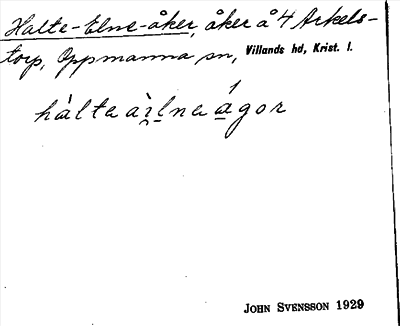 Halte-Elne-åker, åker å 4 Arkels-
torp, Oppmanna sn, Villands hd, Krist. l.
hàltaàilna ágor
JOHN SVENSSON 1929